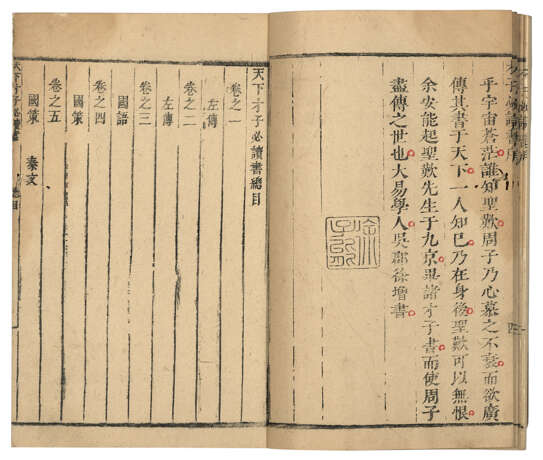 乎宇宙蒼茫誰知聖歎周子乃心慕之不衰而欲廣
傳其書于天下一人知己乃在身後聖歎可以無恨
余安能起聖歎先生于九京畢諸才子書而使周子
盡傳之世也大易學人吳郡徐增書
天下才子必讀書總目
卷之一
左傳
卷之二
左傳
卷之三
國語
卷之四
國策
卷之五
國策 秦文
天下才子必讀書 總目